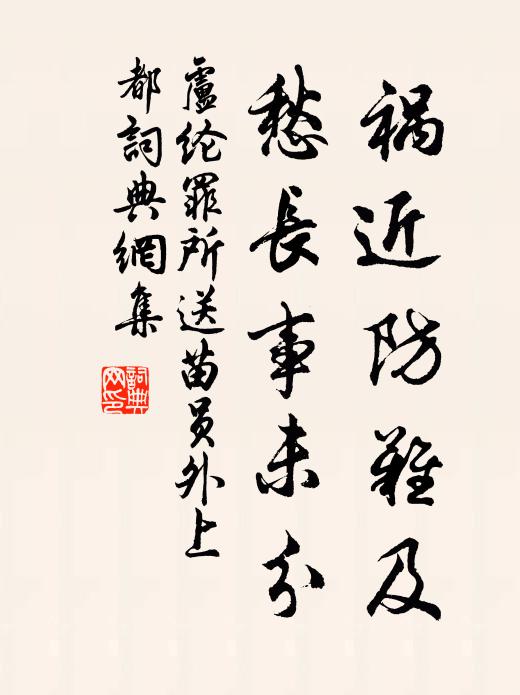 禍近防難及
愁長事未分
盧纶罪所送苗員外上
都詞典網集
詞典
网印